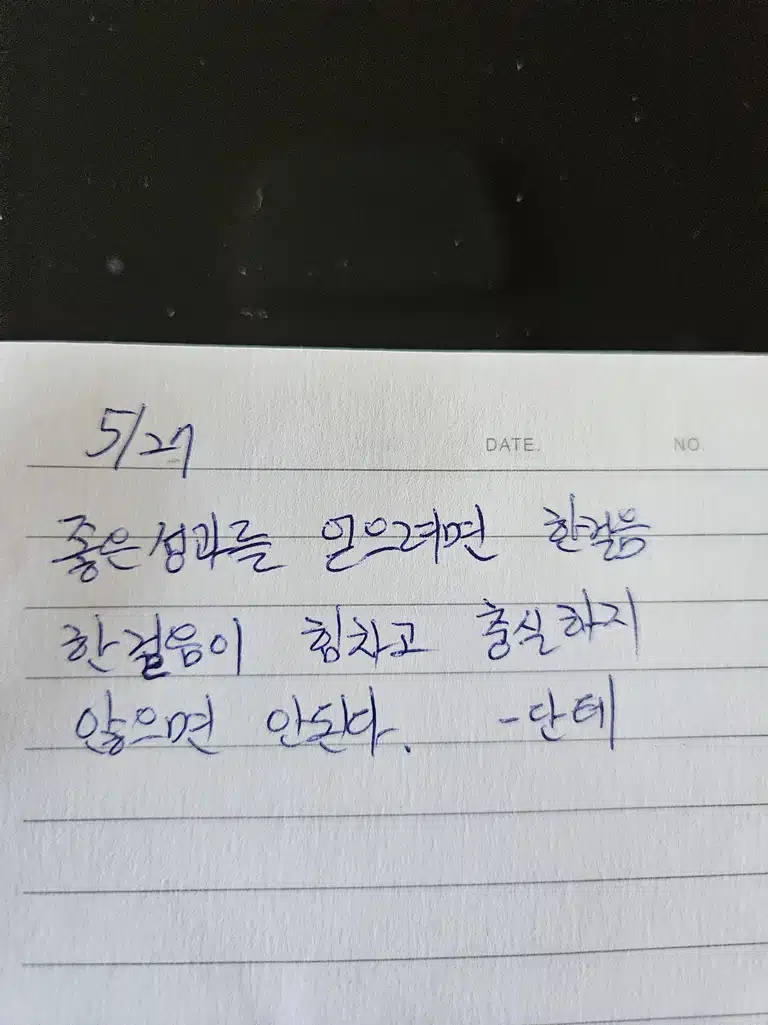 5/27
DATE. NO
좋은 성과를 얻으려면 한걸음
한걸음이 힘차고 충실하지
않으면 안된다. -단테